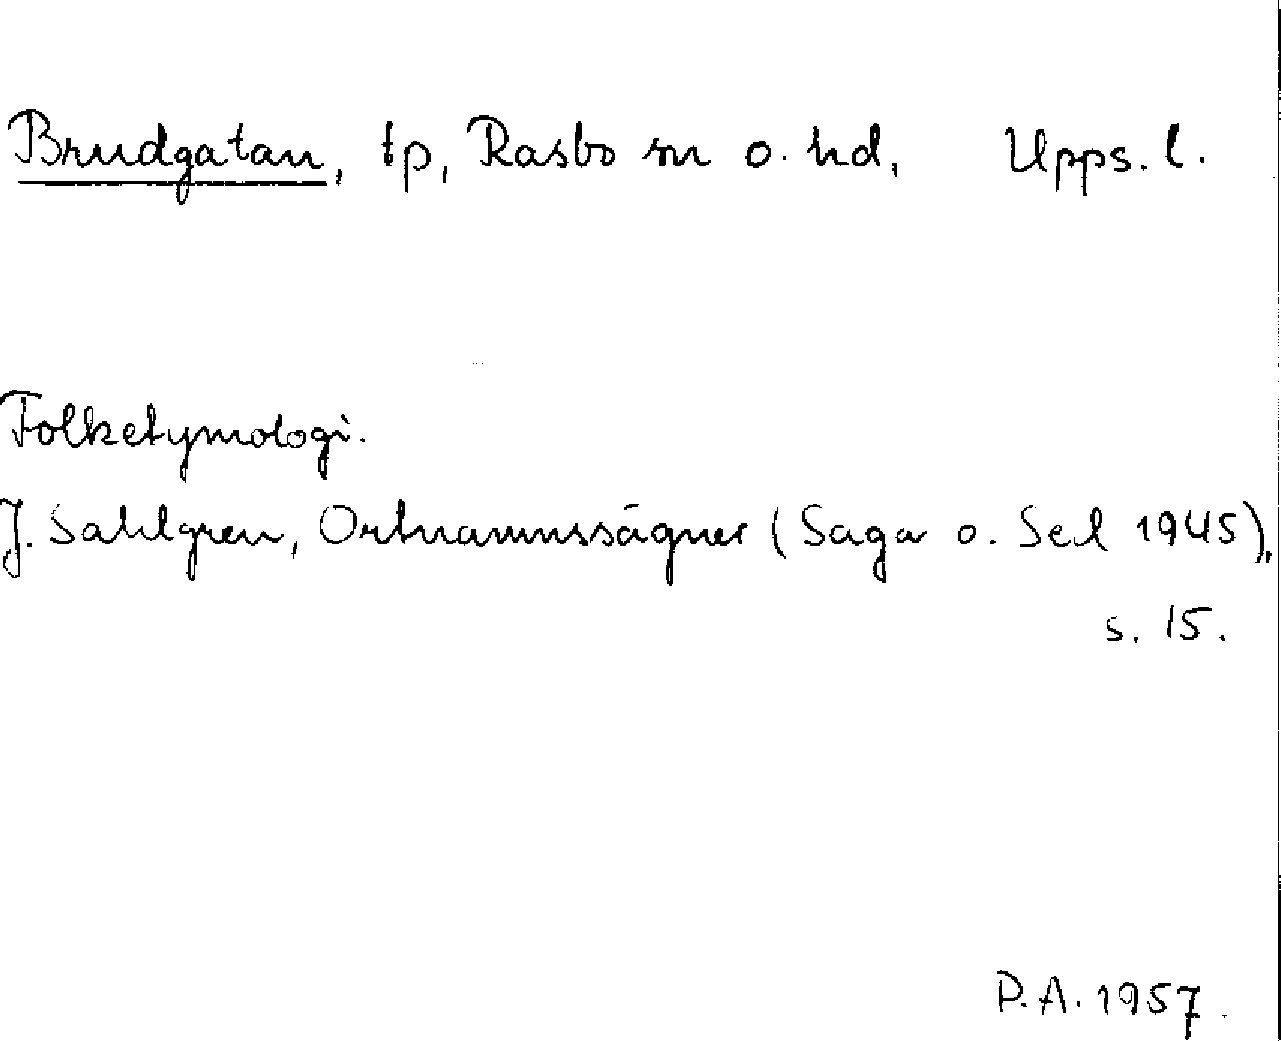 Brudgatan, tp, Rasbo sn o. hd, Upps. l.
Folketymologi.
J. Sahlgren, Ortnamnssägner (Saga o. Sed 1945),
s. 15.
P.A. 1957.